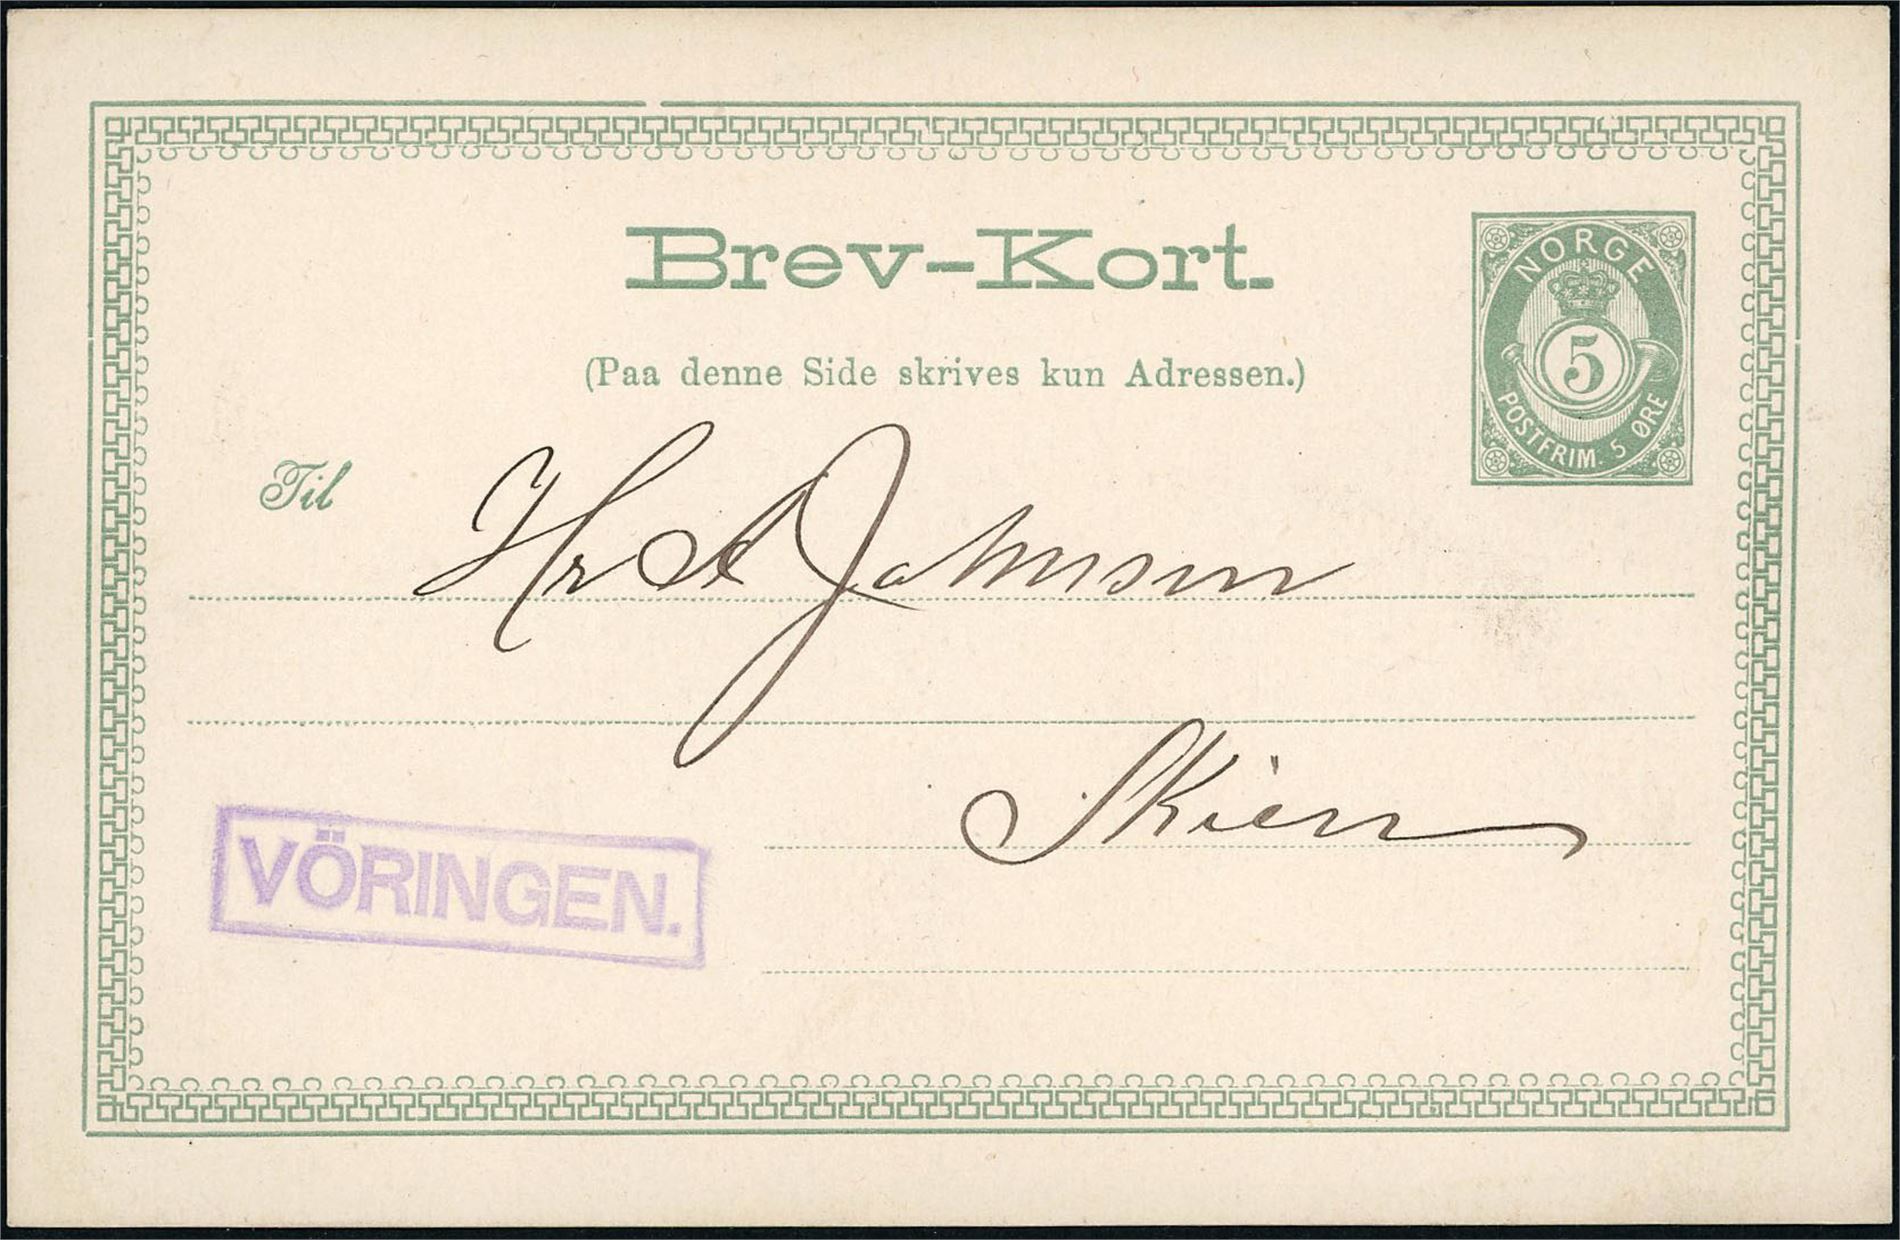 Brev-Kort.
NORGE
5
POSTFRIM. 5 ØRE
(Paa denne Side skrives kun Adressen.)
Til
Hr A Johnsen
Skien
VÖRINGEN.